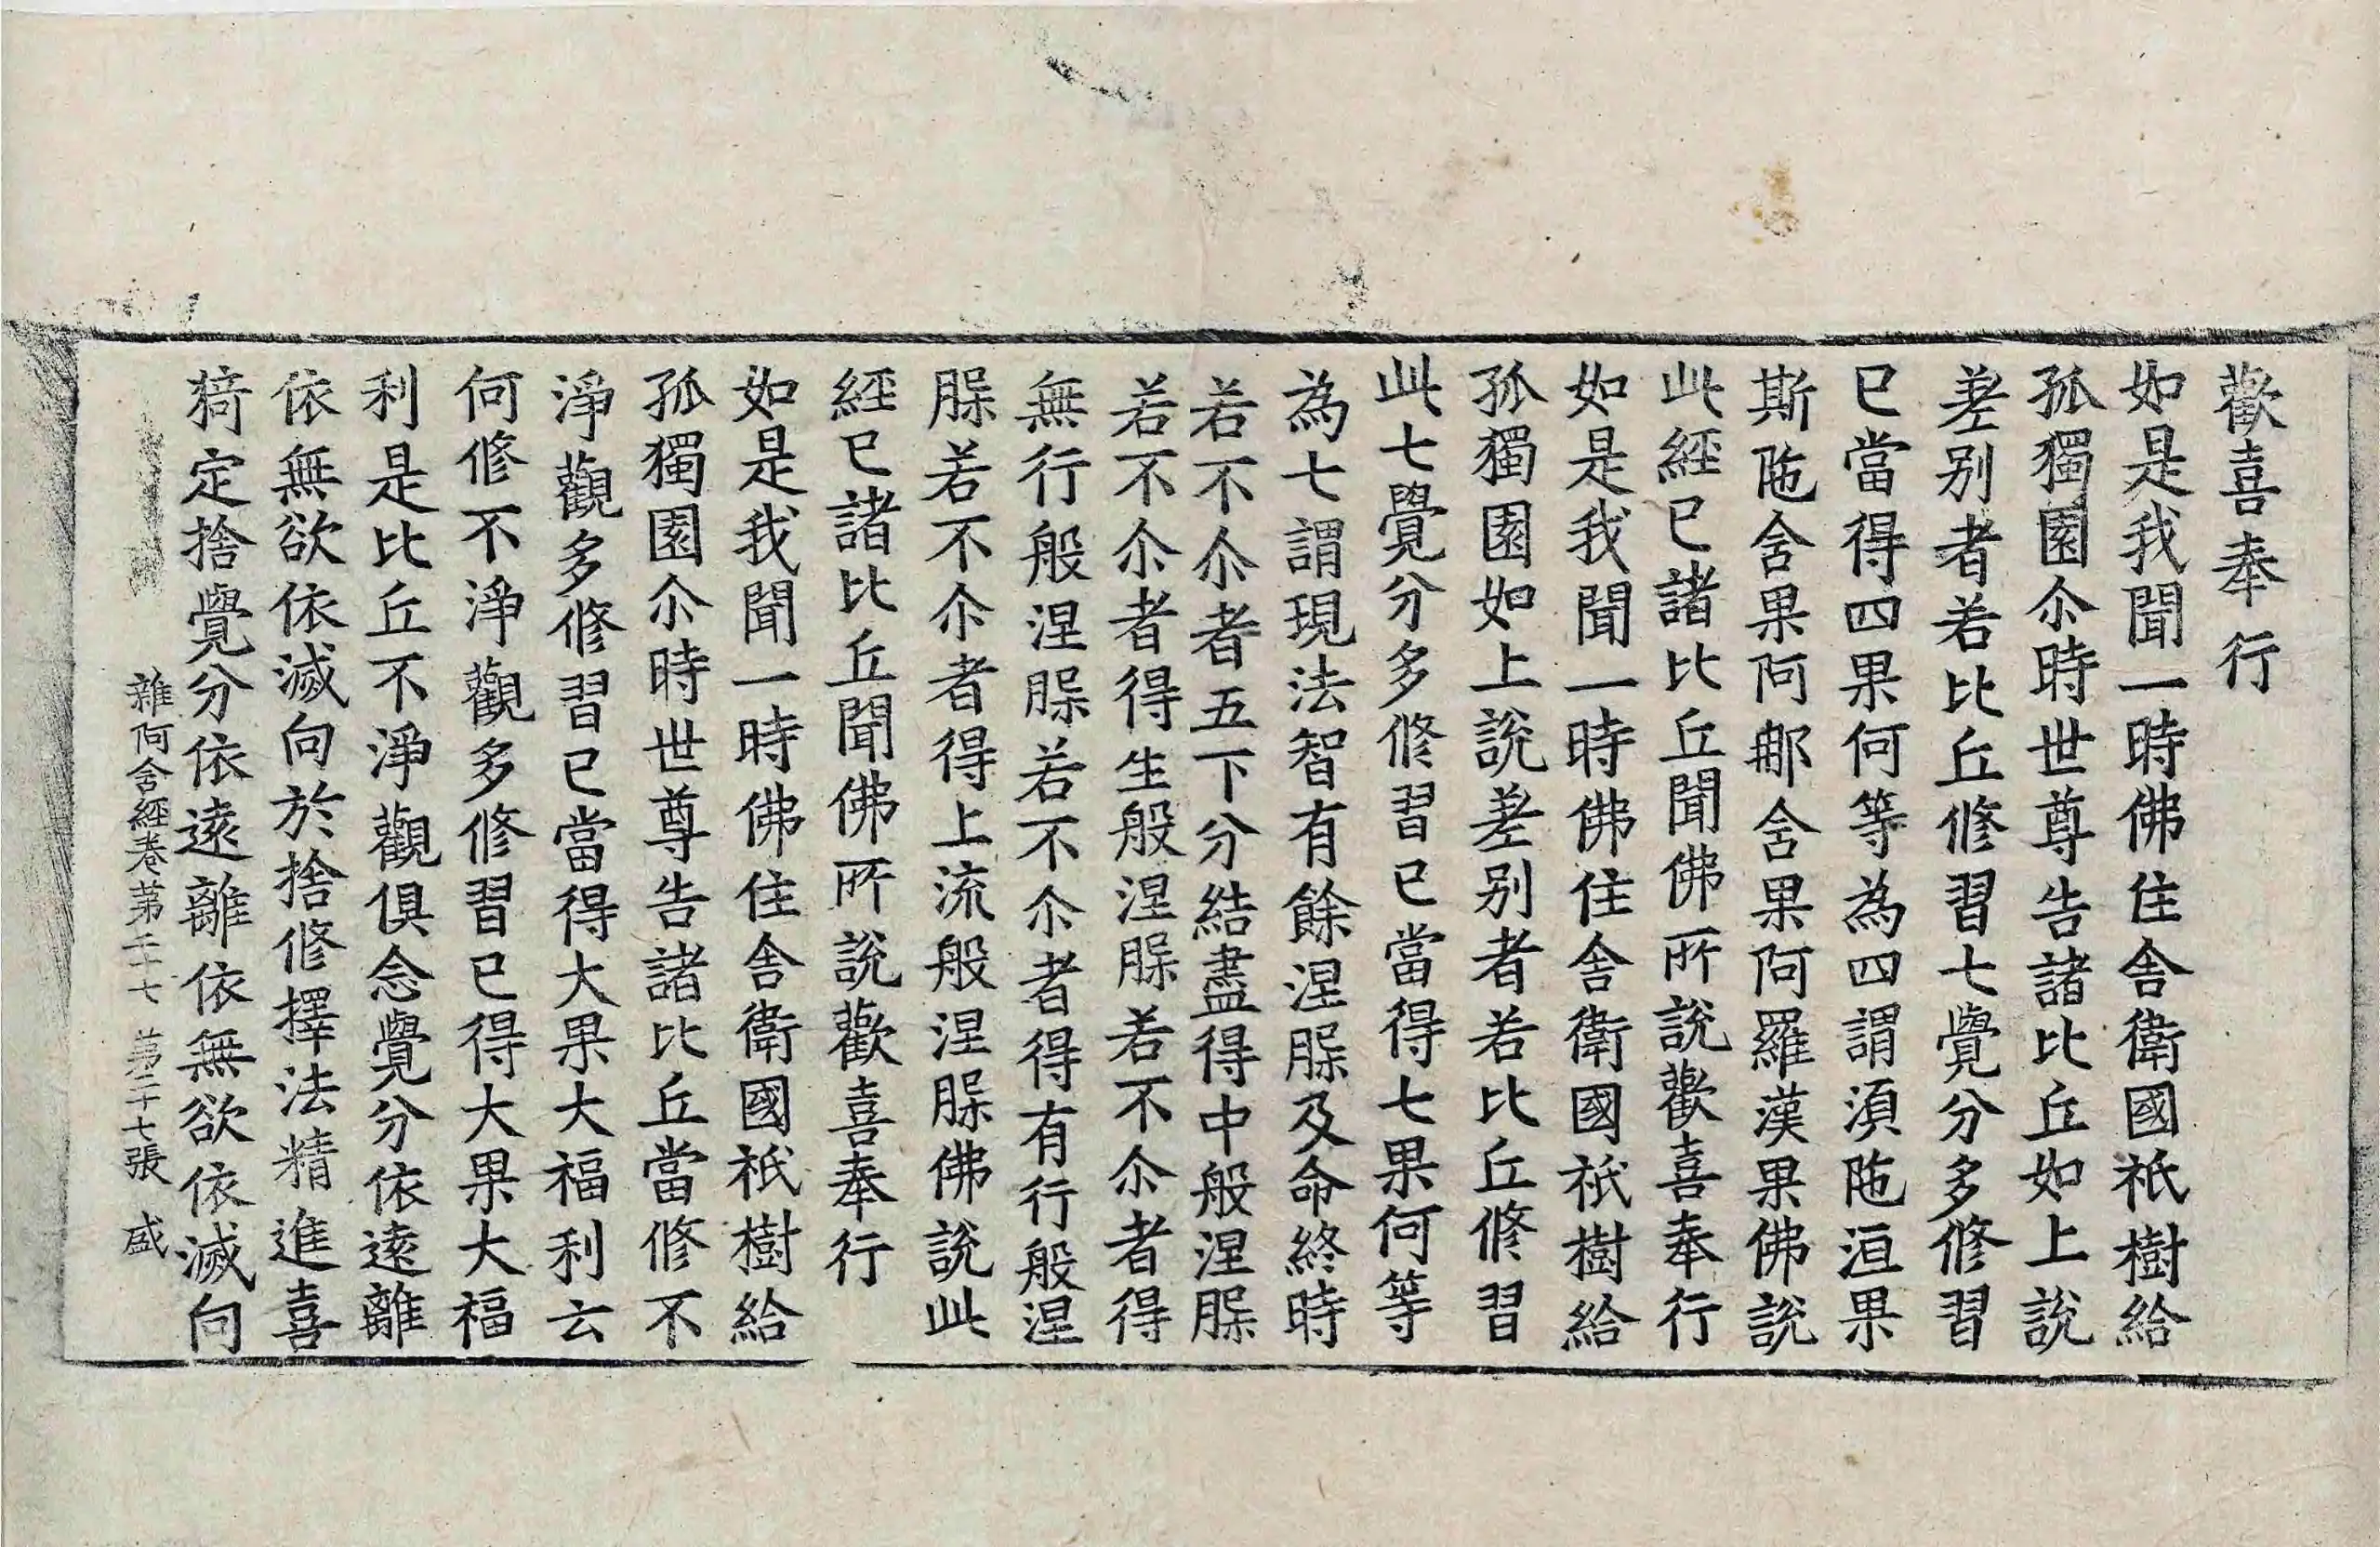 歡喜奉行
如是我聞一時佛住舎衛國祇樹給
孤獨園尒時世尊告諸比丘如上說
差别者若比丘修習七覺分多修習
已當得四果何等為四謂湏陁洹果
斯陁舎果阿那舎果阿羅漢果佛說
此經已諸比丘聞佛所說歡喜奉行
如是我聞一時佛住舎衛國祇樹給
孤獨園如上說差别者若比丘修習
此七覺分多修習已當得七果何等
為七謂現法智有餘涅脲及命終時
若不尒者五下分結盡得中般涅脲
若不尒者得生般涅脲若不尒者得
無行般涅脲若不尒者得有行般涅
脲若不尒者得上流般涅脲佛說此
經已諸比丘聞佛所說歡喜奉行
如是我聞一時佛住舎衛國祇樹給
孤獨園尒時世尊告諸比丘當修不
淨觀多修習已當得大果大福利云
何修不淨觀多修習已得大果大福
利是比丘不淨觀俱念覺分依逺離
依無欲依滅向於捨修擇法精進喜
猗定捨覺分依逺離依無欲依滅向
雜阿含經卷苐二十七 苐二十七張 盛